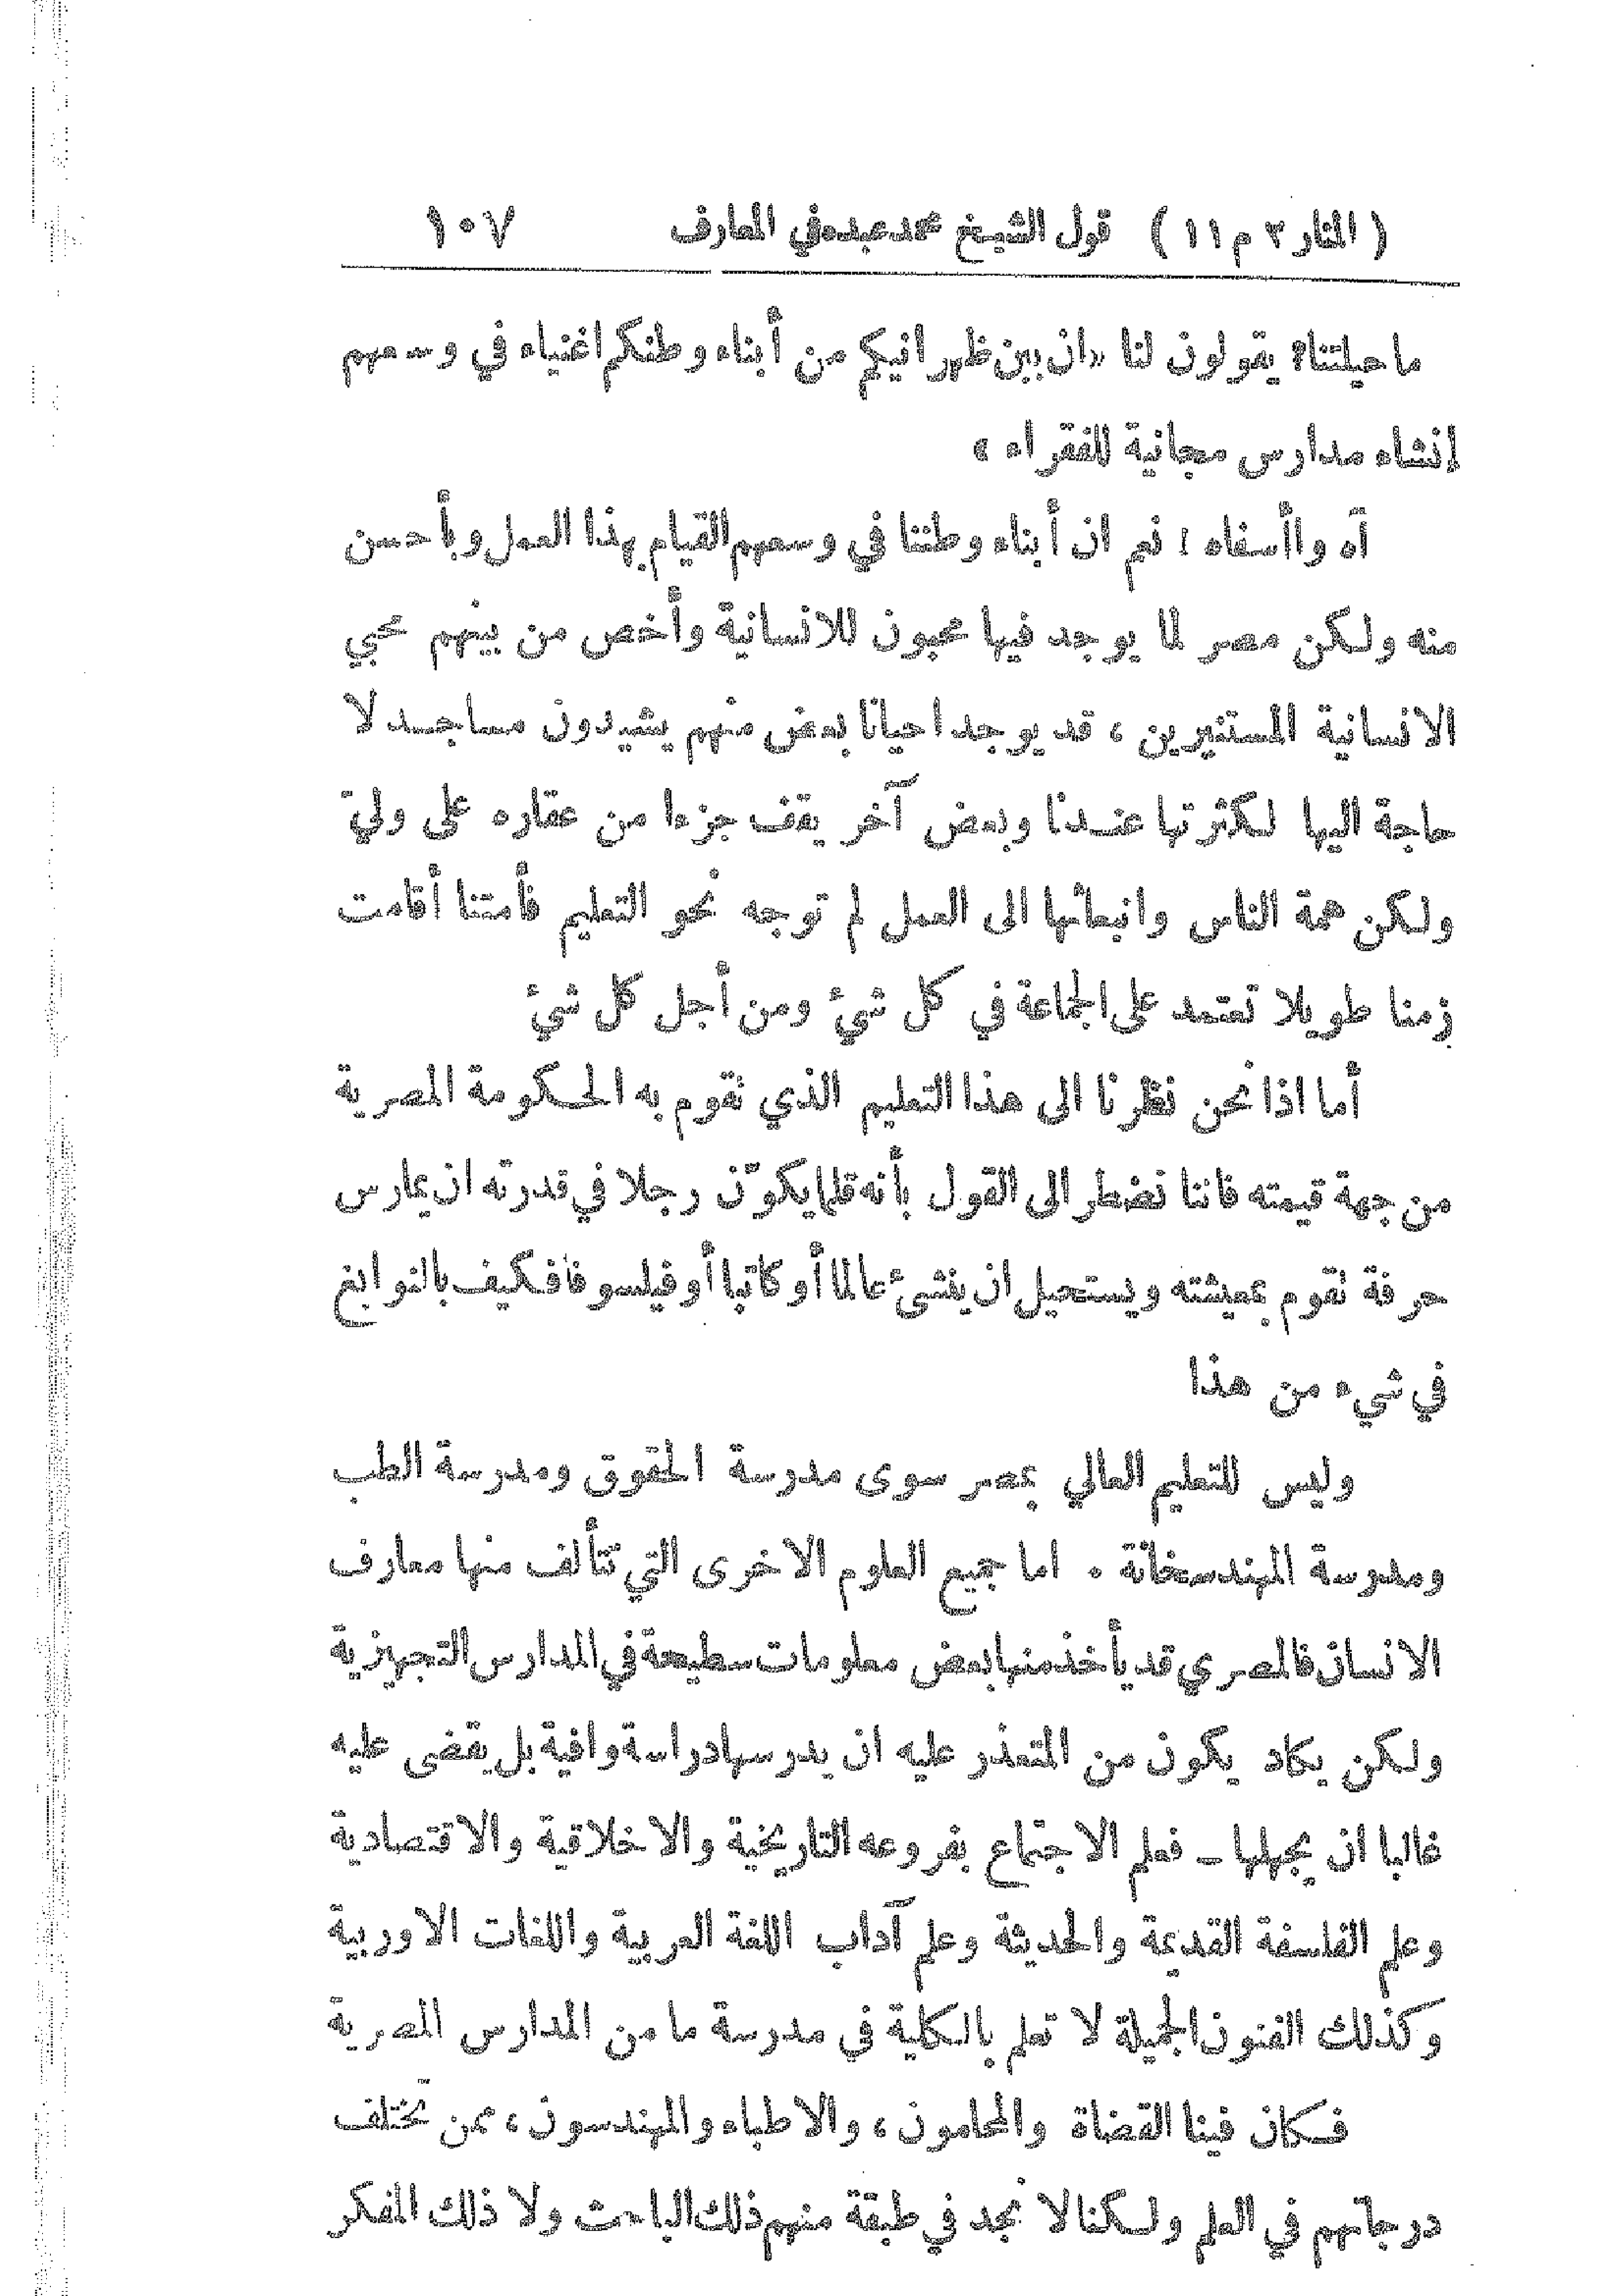 ( المنار ٢ م ١١ ) قول الشيخ محمد عبده في المعارف ١٠٧
ما حيلتنا؟ يقولون لنا « ان بين ظهرانيكم من أبناء وطنكم اغنياء في وسعهم
إنشاء مدارس مجانية للفقراء »
آه واأسفاه ! نعم ان أبناء وطننا في وسعهم القيام بهذا العمل وبأحسن
منه ولكن مصر لما يوجد فيها محبون للانسانية وأخص من بينهم محبي
الانسانية المستنيرين ، قد يوجد احيانا بعض منهم يشيدون مساجد لا
حاجة اليها لكثرتها عندنا وبعض آخر يقف جزءا من عقاره على وليّ
ولكن همة الناس وانبعاثها الى العمل لم توجه نحو التعليم فأمتنا أقامت
زمنا طويلا تعتمد على الجماعة في كل شيئ ومن أجل كل شيئ
أما اذا نحن نظرنا الى هذا التعليم الذي تقوم به الحكومة المصرية
من جهة قيمته فاننا نضطر الى القول بأنه قلما يكوّن رجلا في قدرته ان يمارس
حرفة تقوم بمعيشته ويستحيل ان ينشئ عالما أو كاتبا أو فيلسوفا فكيف بالنوابغ
في شيء من هذا
وليس للتعليم العالي بمصر سوى مدرسة الحقوق ومدرسة الطب
ومدرسة المهندسخانة . اما جميع العلوم الاخرى التي تتألف منها معارف
الانسان فالمصري قد يأخذ منها بعض معلومات سطيحة في المدارس التجهيزية
ولكن يكاد يكون من المتعذر عليه ان يدرسها دراسة وافية بل يقضى عليه
غالبا ان يجهلها ـ فعلم الاجتماع بفروعه التاريخية والاخلاقية والاقتصادية
وعلم الفلسفة القديمة والحديثة وعلم آداب اللغة العربية واللغات الاوربية
وكذلك الفنون الجميلة لا تعلم بالكلية في مدرسة ما من المدارس المصرية
فكان فينا القضاة والمحامون ، والاطباء والمهندسون ، ممن تختلف
درجاتهم في العلم ولكنا لا نجد في طبقة منهم ذلك الباحث ولا ذلك المفكر